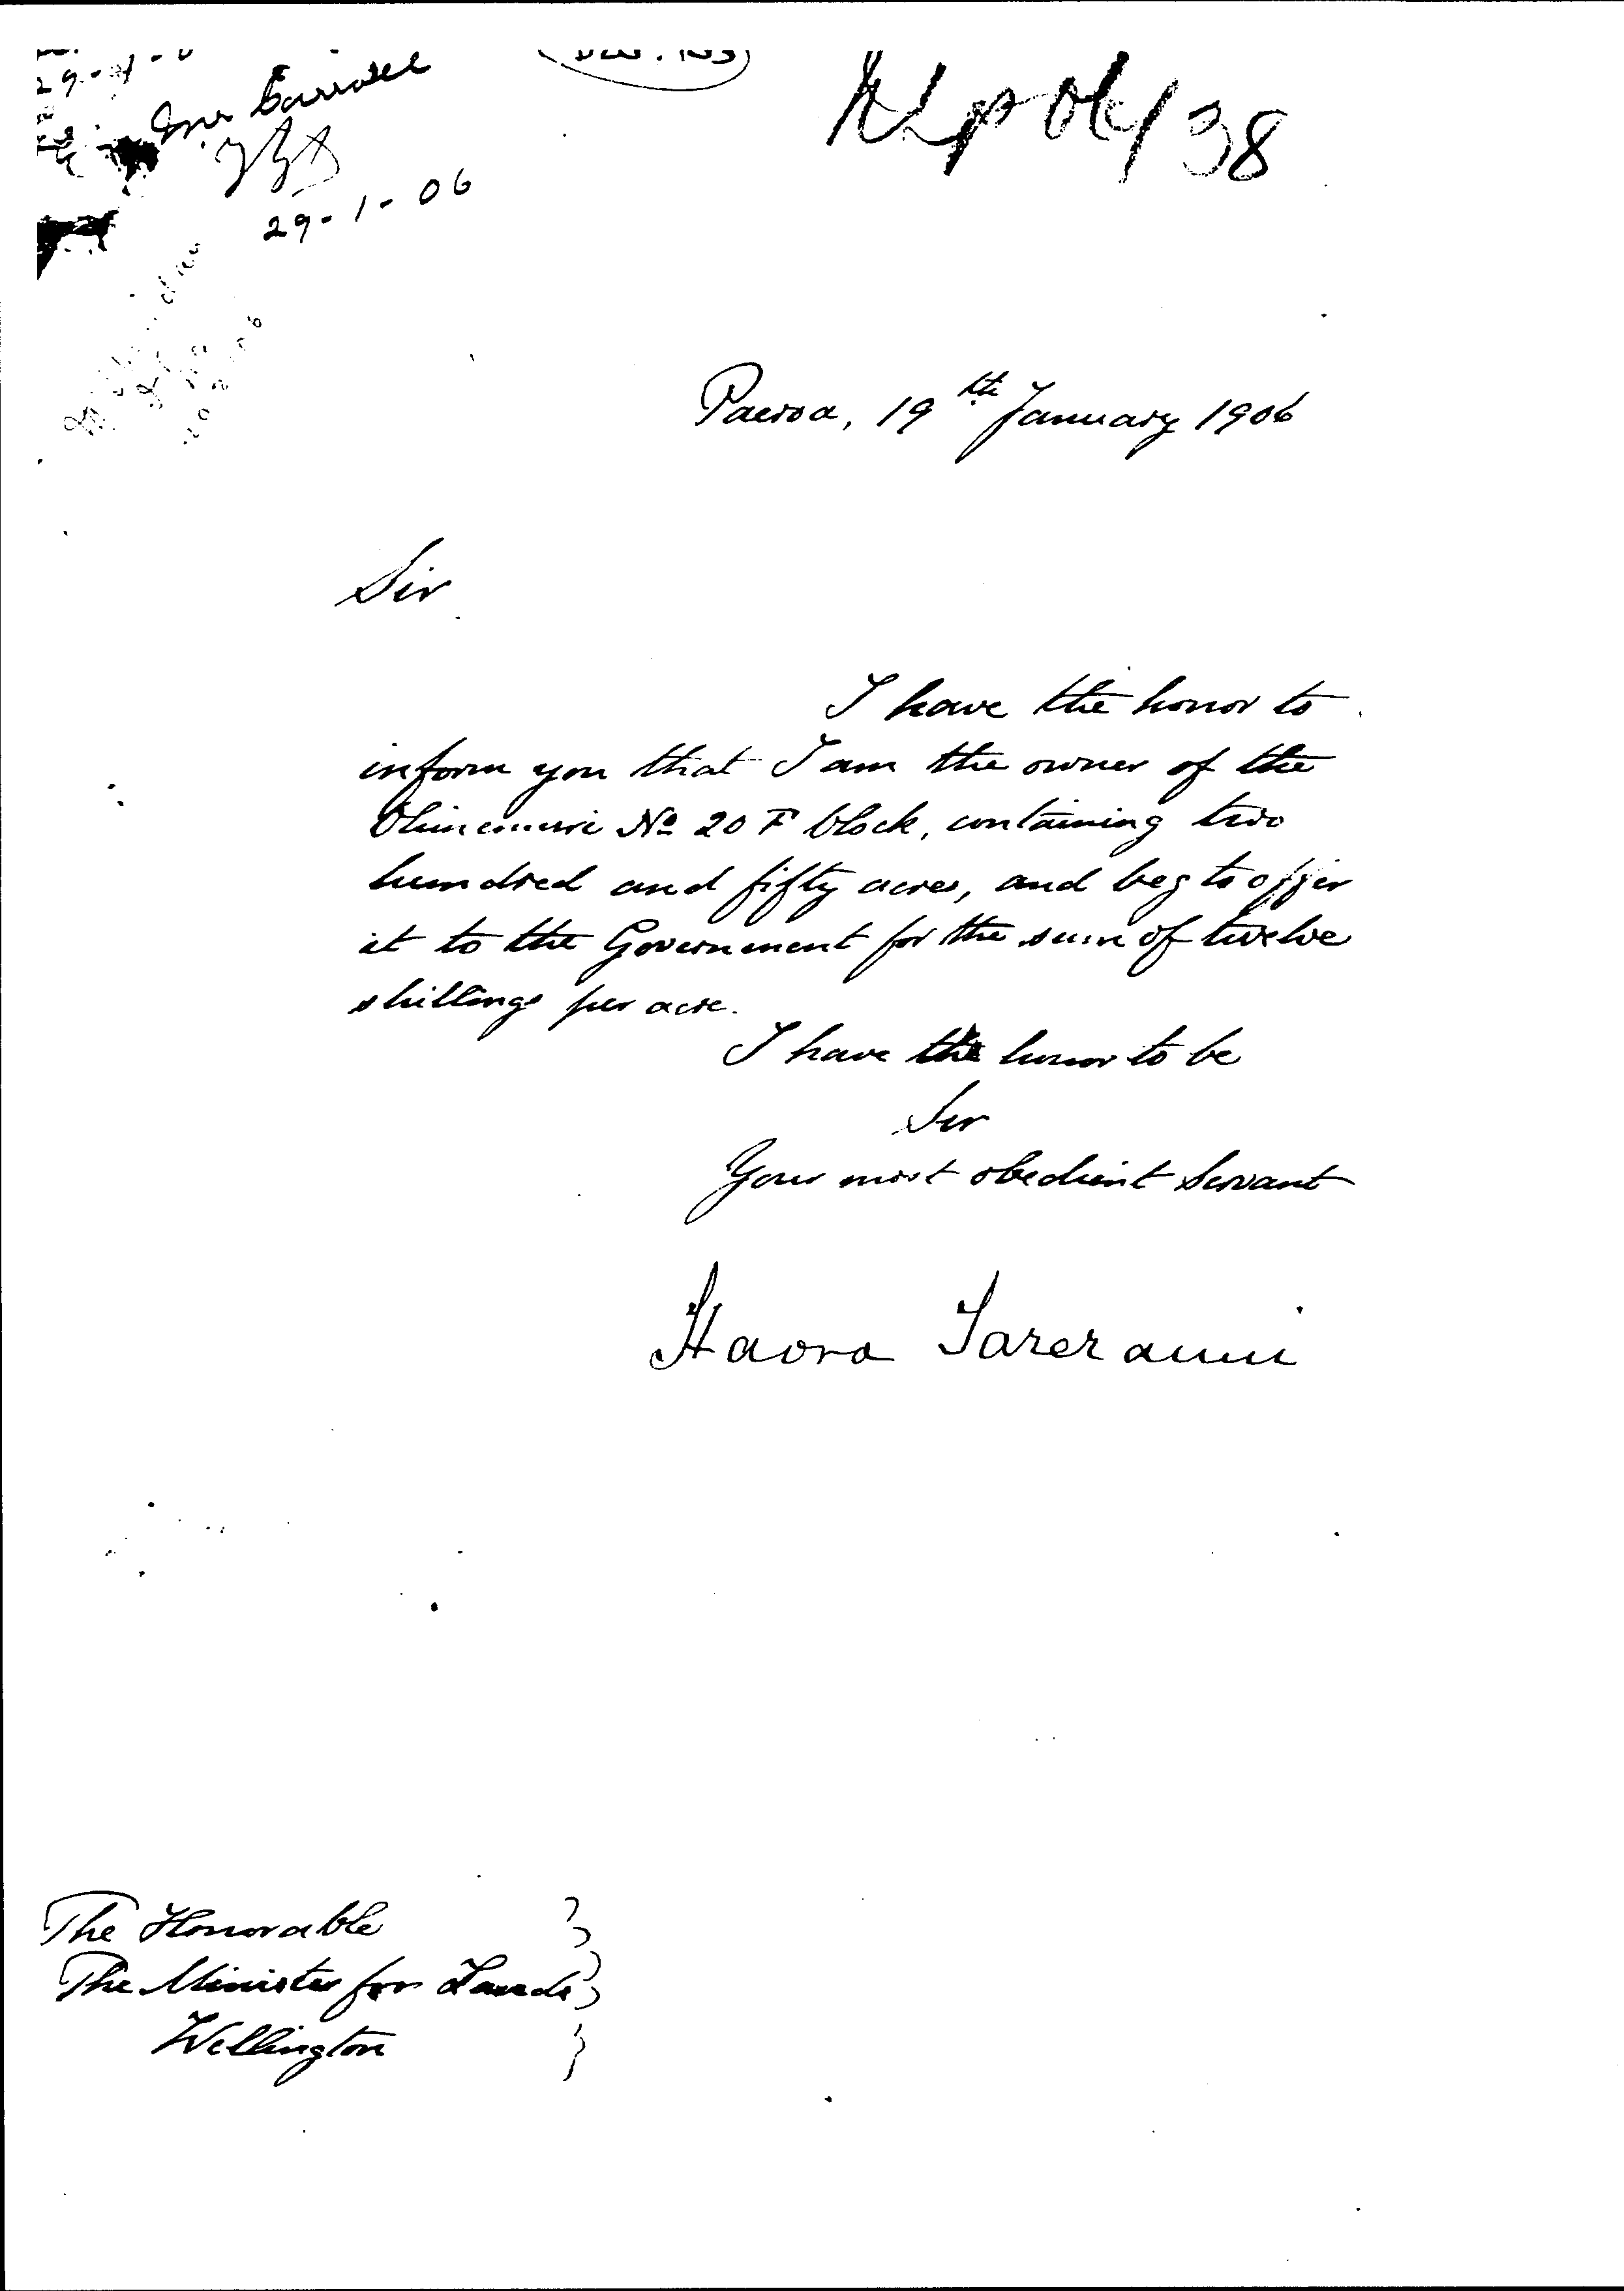 Mr Carroll
29-1-06
38
Paeroa, 19th January 1906
Sir
I have the honor to
inform you that I am the owner of the
Ohinemuri No 20 F block, containing two
hundred and fifty acres, and beg to offer
it to the Government for the sum of twelve
shillings per acre.
I have the honor to be
Sir
Your most obedient servant
Haora Tareranui
The Honorable
The Minister for Lands
Wellington